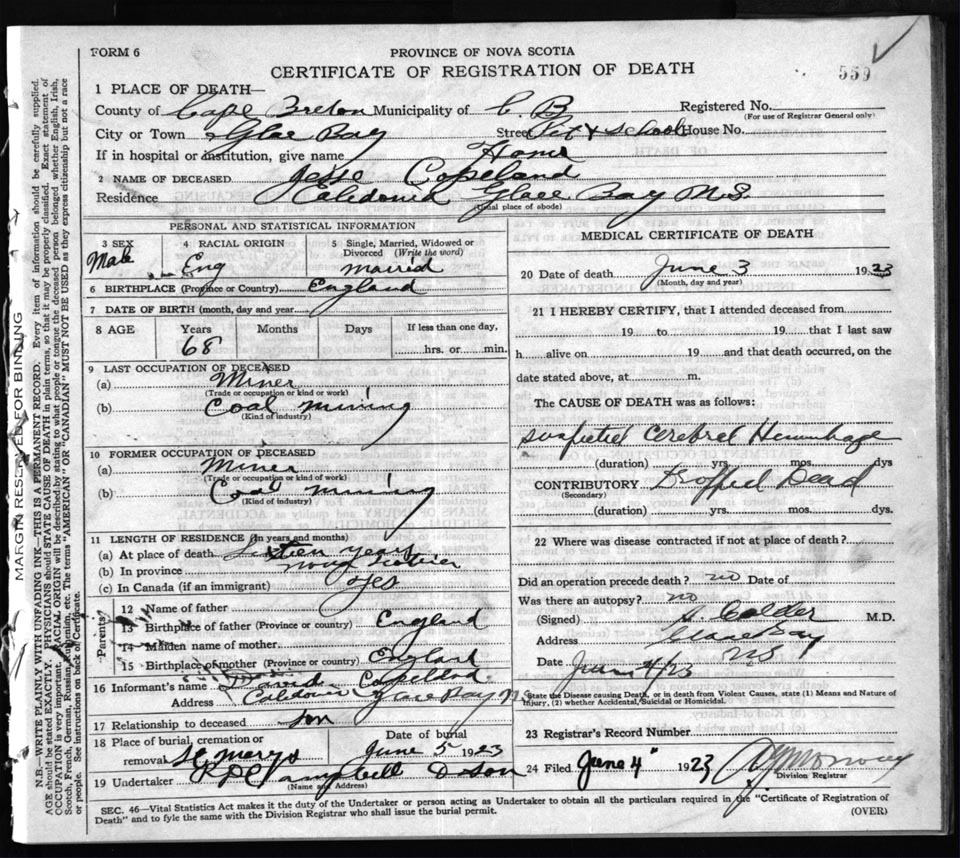 FORM 6
PROVINCE OF NOVA SCOTIA
CERTIFICATE OF REGISTRATION OF DEATH
559
1 PLACE OF DEATH—
County of Cape Breton Municipality of C B Registered No.
(For use of Registrar General only)
City or Town Glace Bay Street Pitt & School House No.
If in hospital or institution, give name Home
2 NAME OF DECEASED Jesse Copeland
Residence Caledonia Glace Bay N.S.
(Usual place of abode)
PERSONAL AND STATISTICAL INFORMATION
3 SEX Male
4 RACIAL ORIGIN Eng
5 Single, Married, Widowed or Divorced (Write the word) married
6 BIRTHPLACE (Province or Country) England
7 DATE OF BIRTH (month, day and year)
8 AGE Years Months Days If less than one day,
68 hrs. or min.
9 LAST OCCUPATION OF DECEASED
(a) Miner
(Trade or occupation or kind or work)
(b) Coal mining
(Kind of industry)
10 FORMER OCCUPATION OF DECEASED
(a) Miner
(Trade or occupation or kind or work)
(b) Coal mining
(Kind of industry)
11 LENGTH OF RESIDENCE (In years and months)
(a) At place of death Sixteen years
(b) In province Nova Scotia
(c) In Canada (if an immigrant) yes
Parents
12 Name of father
13 Birthplace of father (Province or country) England
14 Maiden name of mother
15 Birthplace of mother (Province or country) England
16 Informant's name Copeland
Address Caledonia Glace Bay N S
17 Relationship to deceased son
18 Place of burial, cremation or removal St Marys
Date of burial June 5 1923
19 Undertaker Campbell & Son
(Name and Address)
MEDICAL CERTIFICATE OF DEATH
20 Date of death June 3 1923
(Month, day and year)
21 I HEREBY CERTIFY, that I attended deceased from
19 to 19 that I last saw
h alive on 19 and that death occurred, on the
date stated above, at m.
The CAUSE OF DEATH was as follows:
suspected Cerebral Hemorrhage
(duration) yrs. mos. dys
CONTRIBUTORY Dropped Dead
(Secondary)
(duration) yrs. mos. dys.
22 Where was disease contracted if not at place of death?
Did an operation precede death? no Date of
Was there an autopsy? no
(Signed) H. Calder M.D.
Address Glace Bay
N S
Date June 4/23
State the Disease causing Death, or in death from Violent Causes, state (1) Means and Nature of
Injury, (2) whether Accidental, Suicidal or Homicidal.
23 Registrar's Record Number
24 Filed June 4 1923
Division Registrar
SEC. 46—Vital Statistics Act makes it the duty of the Undertaker or person acting as Undertaker to obtain all the particulars required in the "Certificate of Registration of
Death" and to fyle the same with the Division Registrar who shall issue the burial permit.
(OVER)
MARGIN RESERVED FOR BINDING
N.B.—WRITE PLAINLY WITH UNFADING INK—THIS IS A PERMANENT RECORD. Every item of information should be carefully supplied.
AGE should be stated EXACTLY. PHYSICIANS should STATE CAUSE OF DEATH in plain terms, so that it may be properly classified. Exact statement of
OCCUPATION is very important. RACIAL ORIGIN will be described by stating to what people or tongue the deceased person belonged whether English, Irish,
Scotch, French, German, Russian, Ruthenian, etc. The terms "AMERICAN" OR "CANADIAN" MUST NOT BE USED as they express citizenship but not a race
or people. See instructions on back of Certificate.